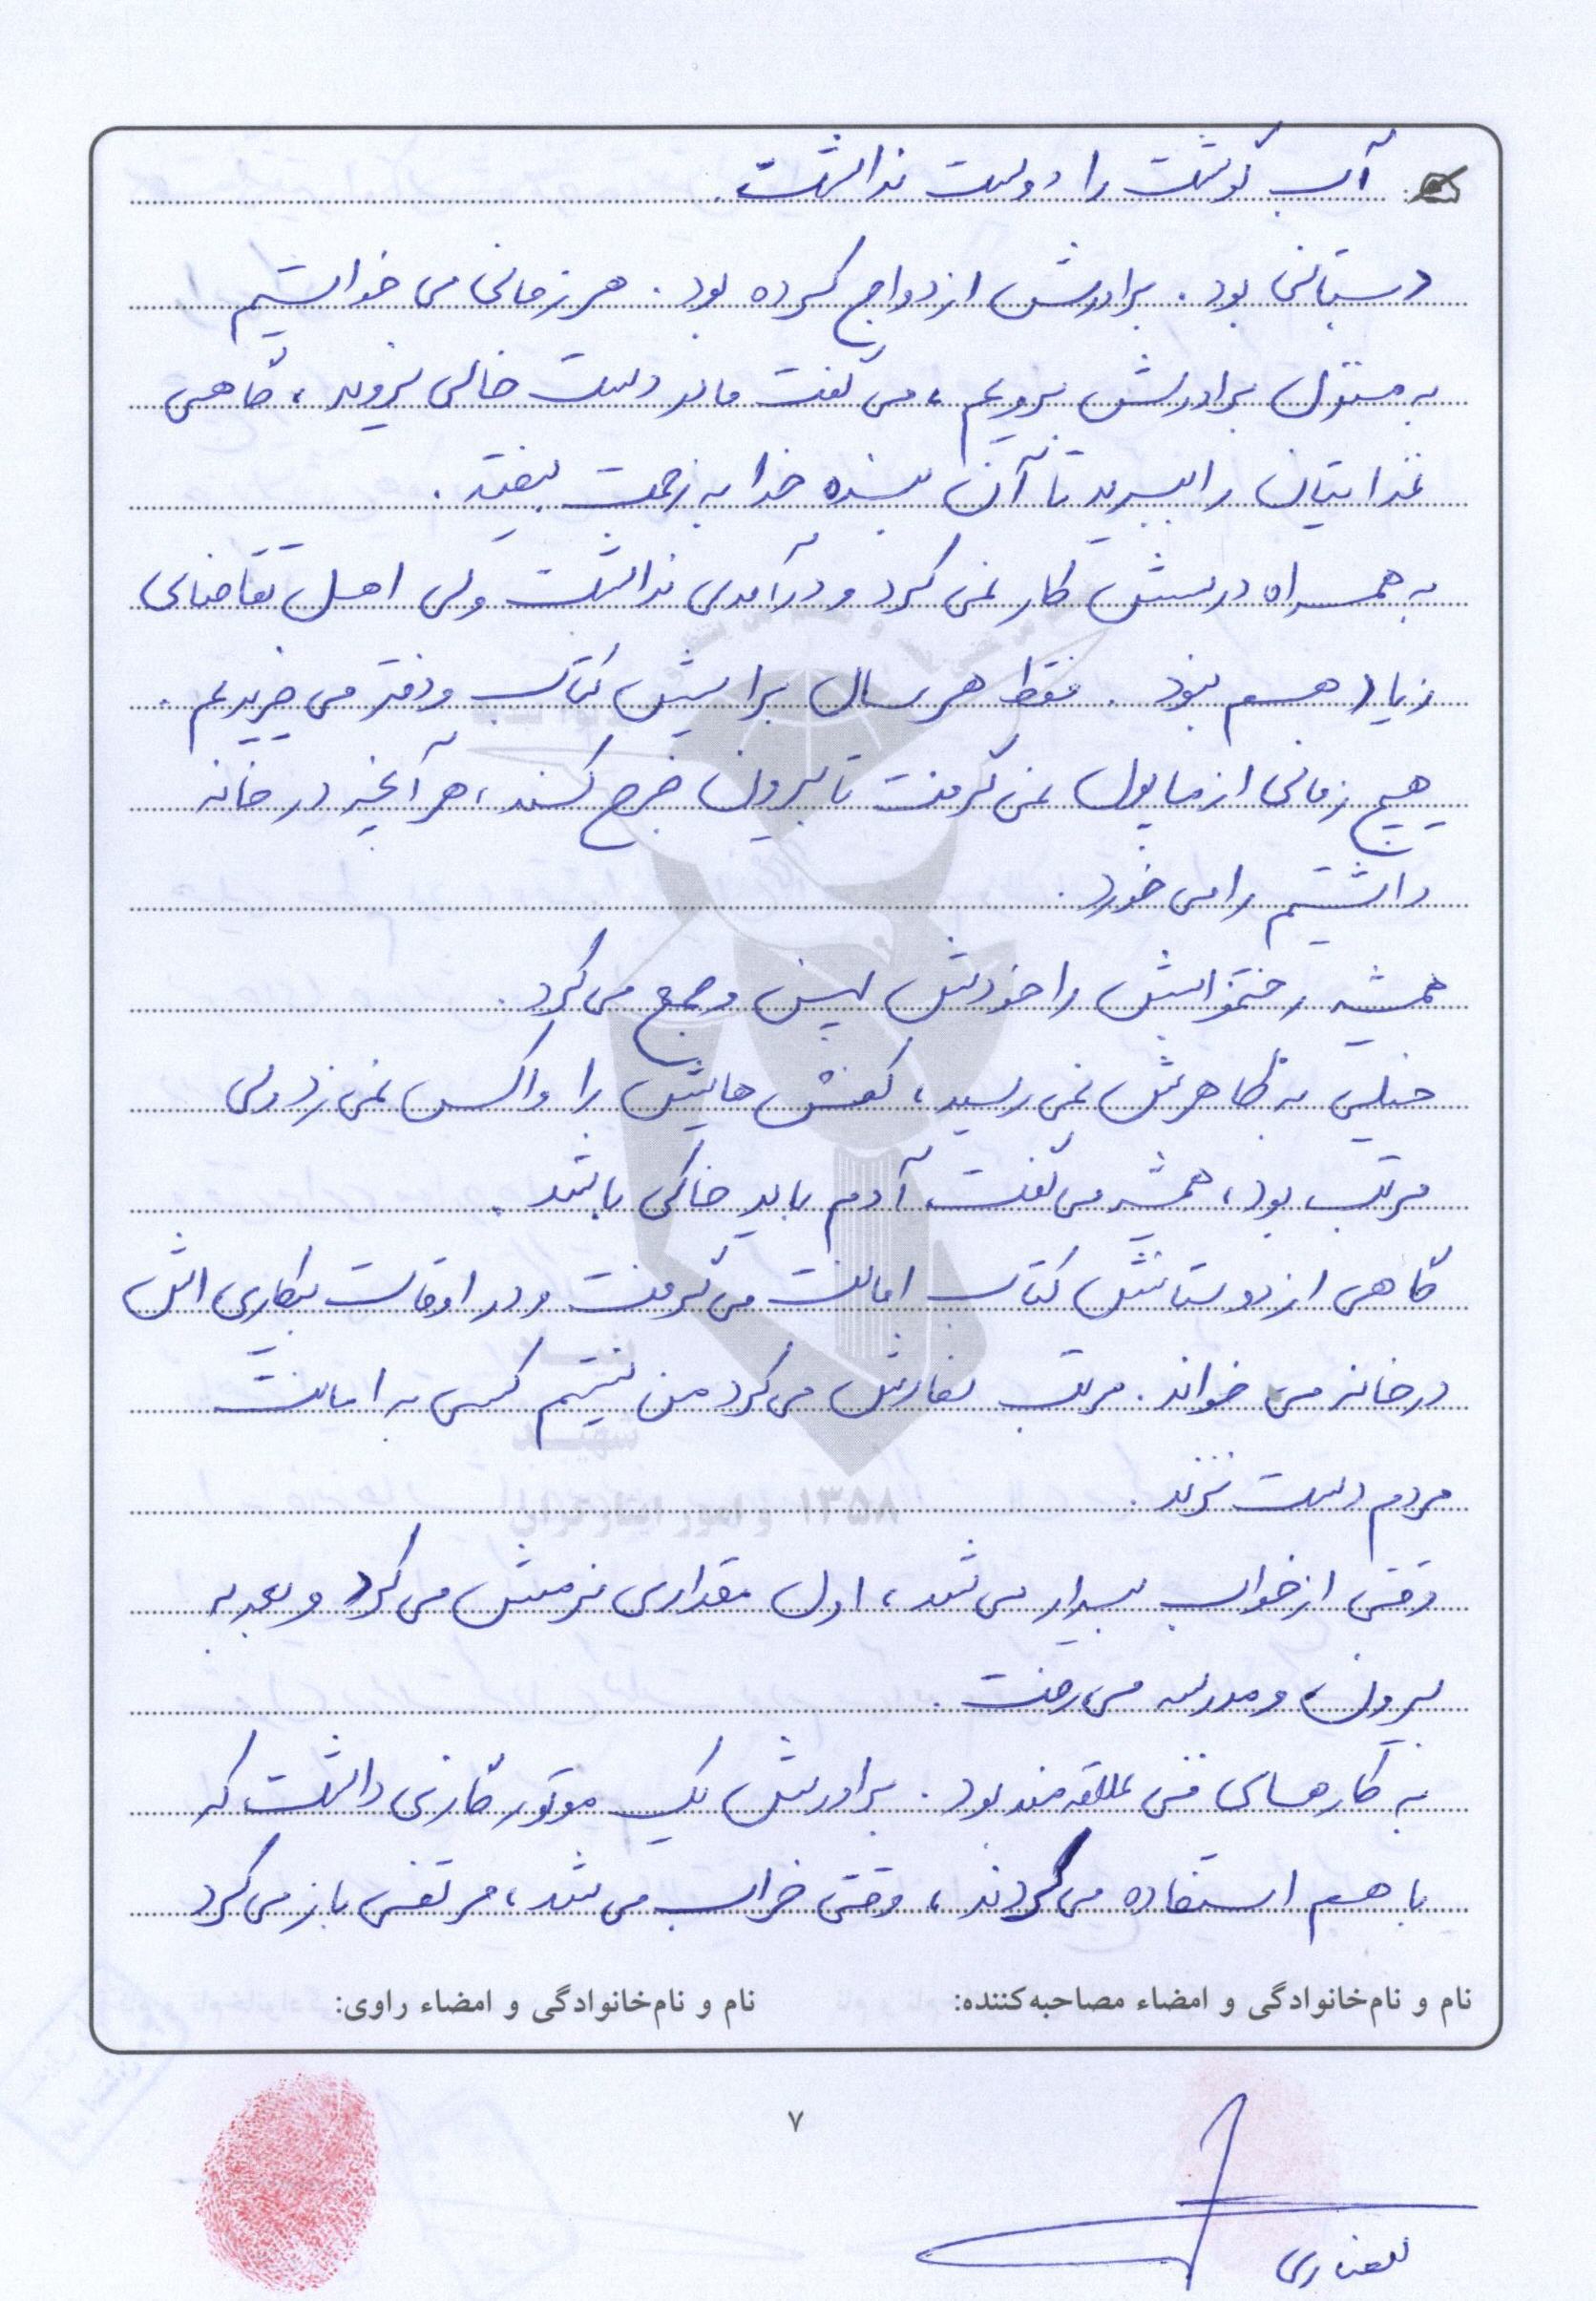 آب گوشت را دوست نداشت.
دبستانی بود. برادرش ازدواج کرده بود. هر زمانی می خواستیم
به منزل برادرش برویم، می گفت مادر دست خالی نروید، گاهی
غذایتان را ببرید تا آن بنده خدا به زحمت نیفتد.
به همراه درسش کار نمی کرد و درآمدی نداشت ولی اهل تقاضای
زیاد هم نبود. فقط هر سال برایش کتاب و دفتر می خریدیم.
هیچ زمانی از ما پول نمی گرفت تا بیرون خرج کند، هر آنچه در خانه
داشتیم را می خورد.
همیشه رختخوابش را خودش پهن و جمع می کرد.
خیلی به ظاهرش نمی رسید، کفش هایش را واکس نمی زد ولی
مرتب بود، همیشه می گفت آدم باید خاکی باشد.
گاهی از دوستانش کتاب امانت می گرفت و در اوقات بیکاری اش
در خانه می خواند. مرتب سفارش می کرد من نیستم کسی به امانت
مردم دست نزند.
وقتی از خواب بیدار می شد، اول مقداری نرمش می کرد و بعد به
بیرون و مدرسه می رفت.
به کارهای فنی علاقه مند بود. برادرش یک موتور گازی داشت که
با هم استفاده می کردند، وقتی خراب می شد، مرتضی باز می کرد
نام و نام‌خانوادگی و امضاء مصاحبه‌کننده:
نام و نام‌خانوادگی و امضاء راوی:
۷